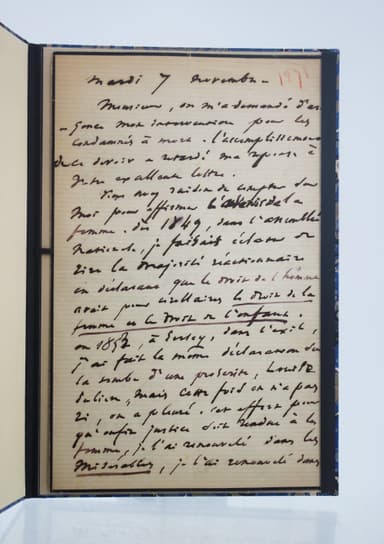 mardi 7 novembre –
Monsieur, on m'a demandé d'ur-
-gence mon intervention pour les
condamnés à mort. l'accomplissement
de ce devoir a retardé ma réponse à
votre excellente lettre.
Vous avez raison de compter sur
moi pour affirmer la
femme. dès 1849, dans l'assemblée
nationale, je faisais éclater de
rire la majorité réactionnaire
en déclarant que le droit de l'homme
avait pour corollaires le droit de la
femme et le droit de l'enfant.
en 1853, à Jersey, dans l'exil,
j'ai fait la même déclaration sur
la tombe d'une proscrite, Louise
Julien, mais cette fois on n'a pas
ri, on a pleuré. cet effort pour
qu'enfin justice soit rendue à la
femme, je l'ai renouvelé dans les
Misérables, je l'ai renouvelé dans